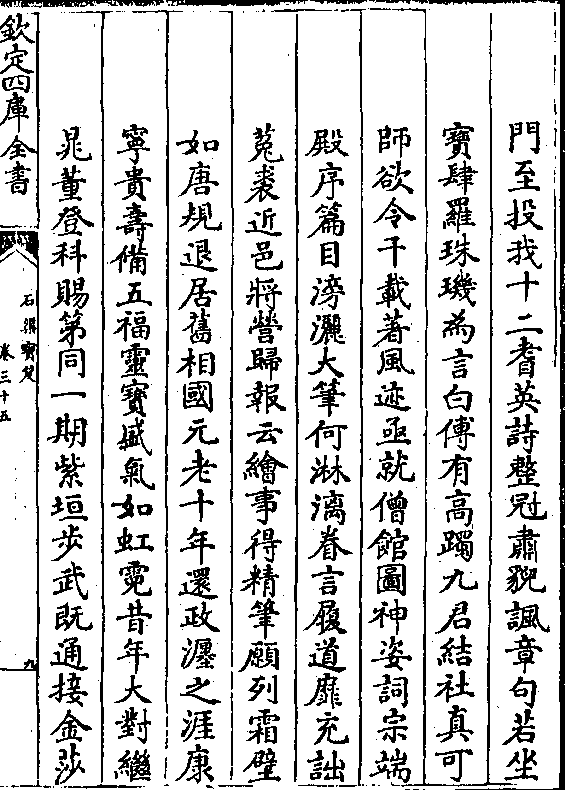 門至投我十二耆英詩整冠肅貌諷章句若坐
寶肆羅珠璣為言白傅有高躅九君結社真可
師欲令千載著風迹亟就僧館圖神姿詞宗端
殿序篇目滂灑大筆何淋漓眷言履道靡充詘
菟裘近邑將營歸報云繪事得精筆願列霜壁
如唐規退居舊相國元老十年還政瀍之涯康
寧貴壽備五福靈寶盛氣如虹霓昔年大對繼
晁董登科賜第同一期紫垣步武既通接金莎
欽定四庫全書
石倉寶笈
卷三十五
九